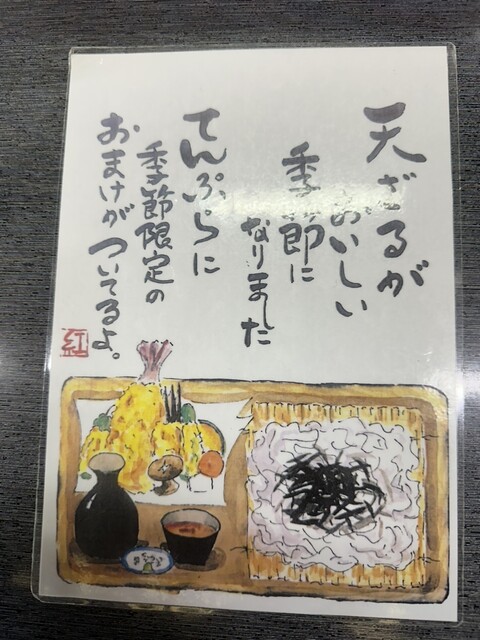 天ざるが
おいしい
季節に
なりました
てんぷらに
季節限定の
おまけが
ついてるよ。
紅